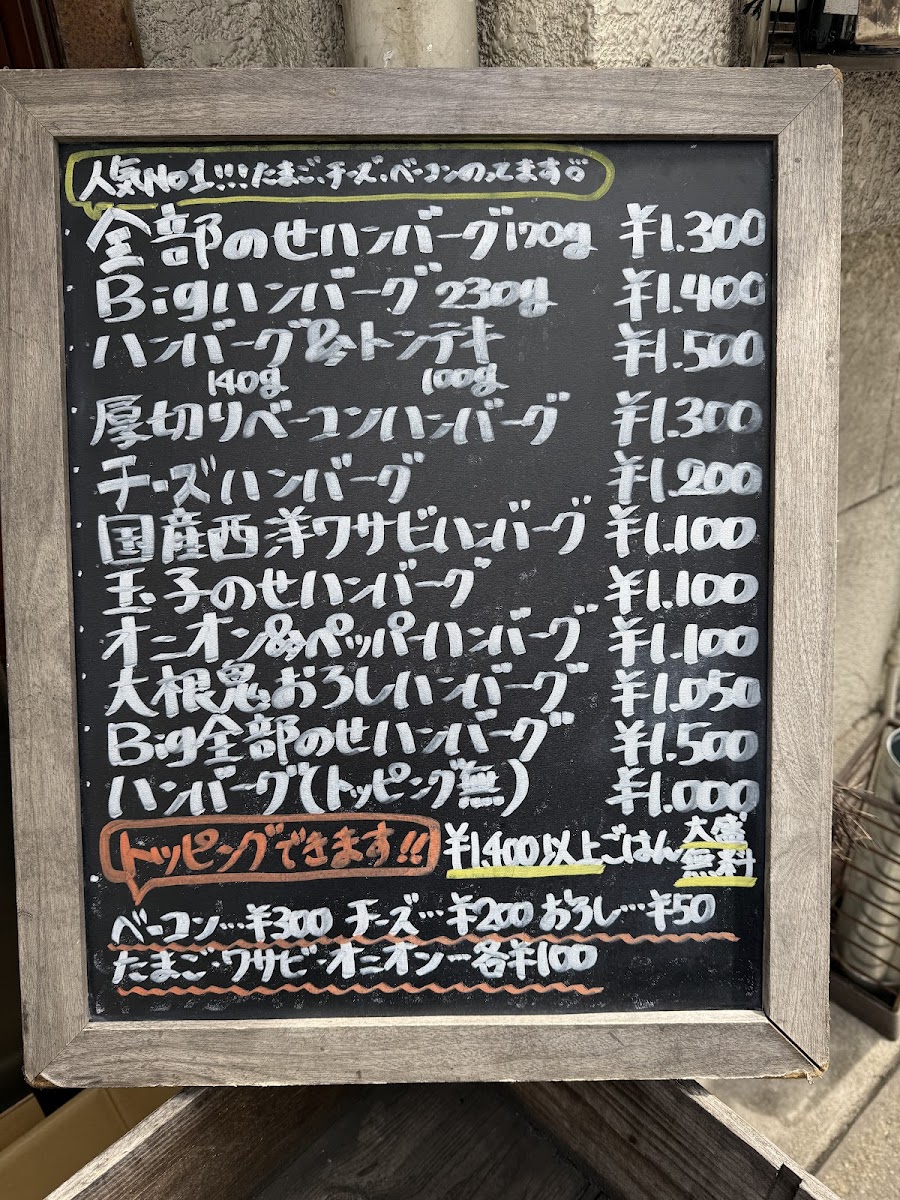 人気No1!!!たまご、チーズ、ベーコンのってます
・全部のせハンバーグ170g ¥1.300
・Bigハンバーグ 230g ¥1.400
・ハンバーグ&トンテキ ¥1.500
140g 100g
・厚切りベーコンハンバーグ ¥1.300
・チーズハンバーグ ¥1.200
・国産西洋ワサビハンバーグ ¥1.100
・玉子のせハンバーグ ¥1.100
・オニオン&ペッパーハンバーグ ¥1.100
・大根鬼おろしハンバーグ ¥1.050
・Big全部のせハンバーグ ¥1.500
・ハンバーグ(トッピング無) ¥1.000
トッピングできます!! ¥1.400以上ごはん大盛無料
ベーコン…¥300 チーズ…¥200 おろし…¥50
たまご・ワサビ・オニオン…各¥100